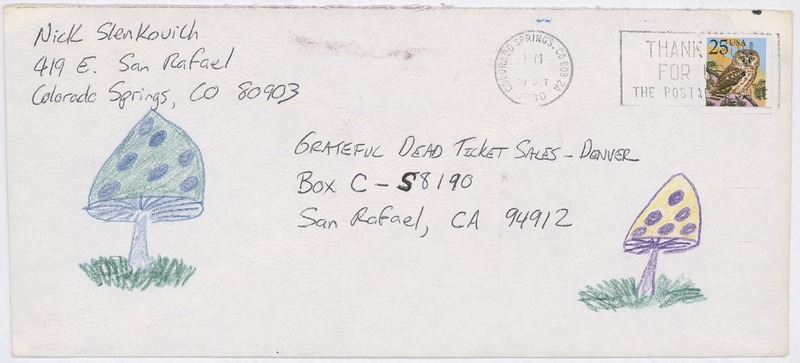 Nick Slenkovich
419 E. San Rafael
Colorado Springs, CO 80903
COLORADO SPRINGS, CO 809
PM
OCT
THANK
FOR
THE POSTA
25 USA
GRATEFUL DEAD TICKET SALES - DENVER
Box C - S8190
San Rafael, CA 94912